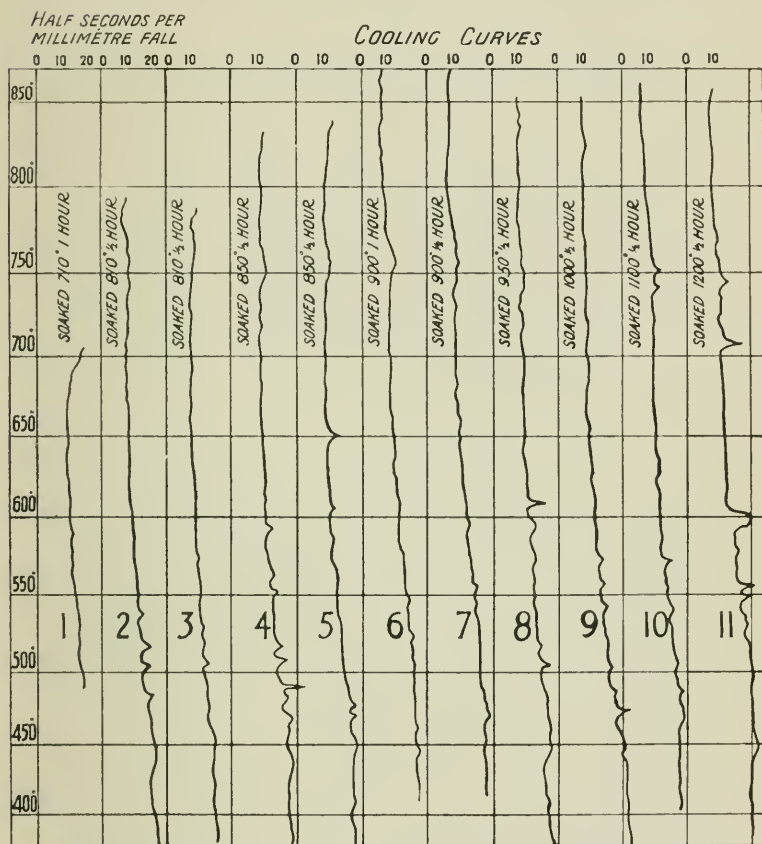 HALF SECONDS PER
MILLIMÈTRE FALL
COOLING CURVES
1 10 20 0 10 20 0 10 0 10 0 10 0 10 0 10 0 10 0 10 0 10 0 10
850°
800°
750°
700°
650°
600°
550°
500°
450°
400°
SOAKED 710° 1 HOUR
SOAKED 810° ½ HOUR
SOAKED 810° ½ HOUR
SOAKED 850° ½ HOUR
SOAKED 850° ½ HOUR
SOAKED 900° 1 HOUR
SOAKED 900° ½ HOUR
SOAKED 950° ½ HOUR
SOAKED 1000° ½ HOUR
SOAKED 1100° ½ HOUR
SOAKED 1200° ½ HOUR
1 2 3 4 5 6 7 8 9 10 11